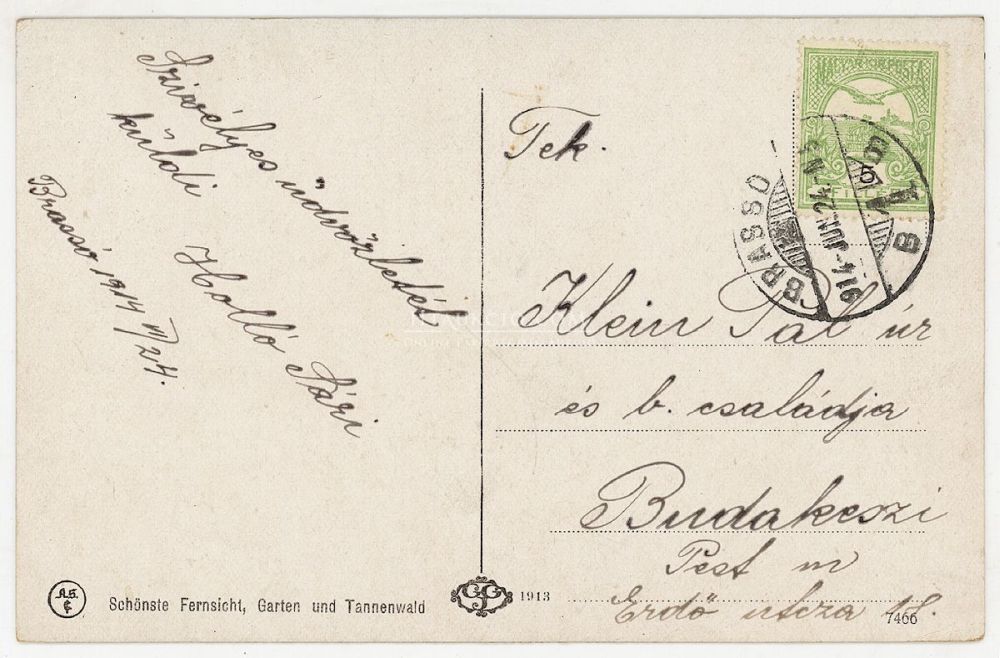 Szívélyes üdvözletét
küldi
Holló Sári
Brassó 1914 VI/24.
Tek.
Klein Pál úr
és b. családja
Budakeszi
Pest m
Erdő utcza 18.
MAGYAR KIR. POSTA
BRASSÓ
914 JUN. 24
B
A.S.
Schönste Fernsicht, Garten und Tannenwald
1913
7466